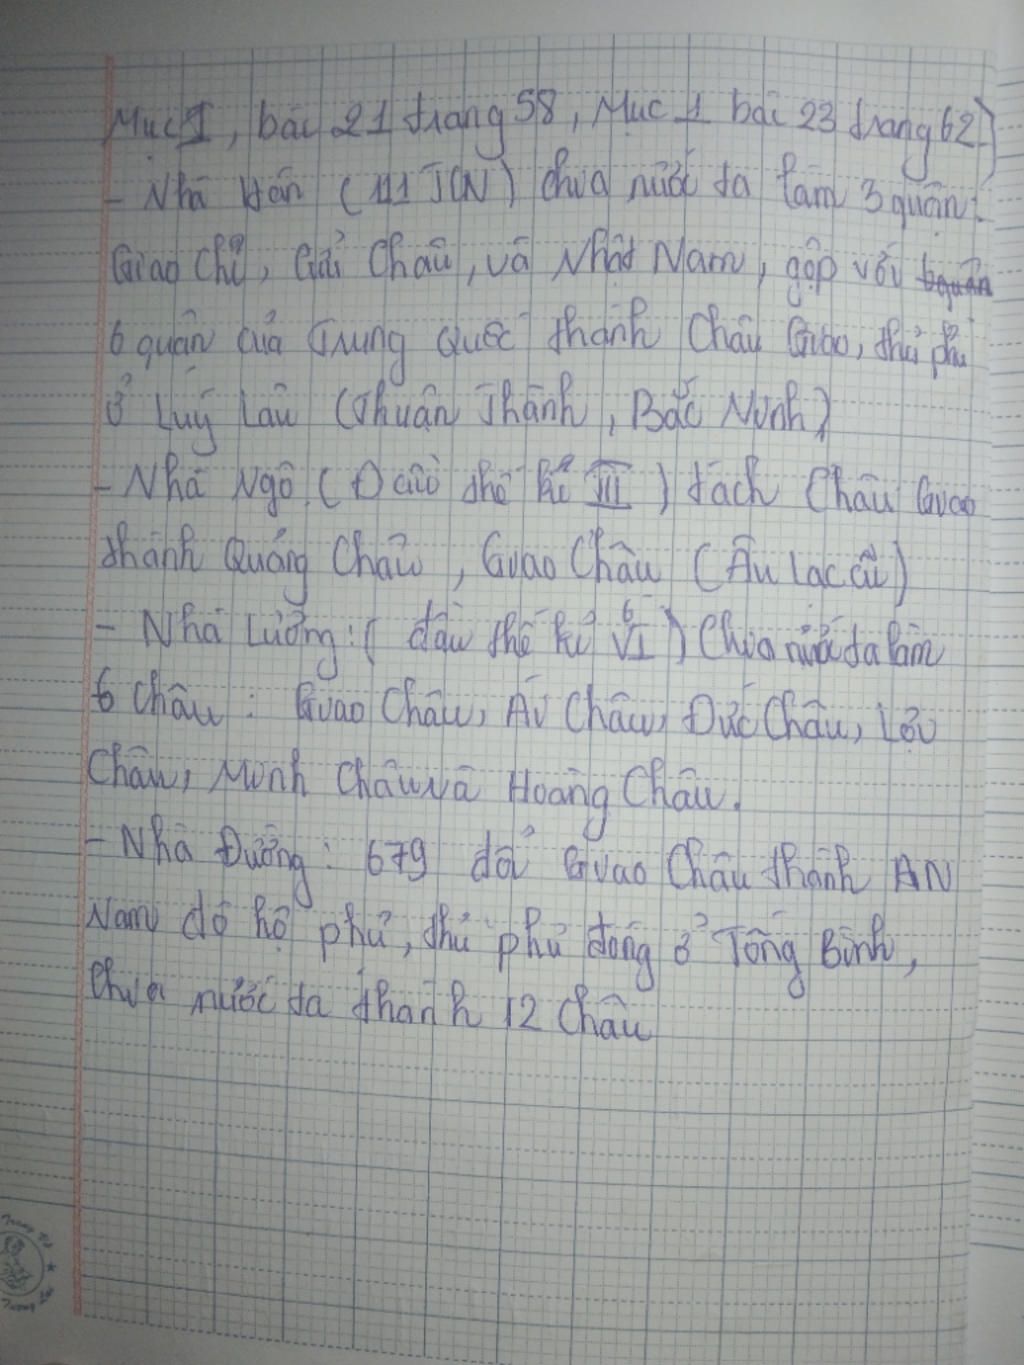 Mục I, bài 21 trang 58, Mục 1 bài 23 trang 62)
- Nhà Hán (111 TCN) chia nước ta làm 3 quận:
Giao Chỉ, Cửu Chân, và Nhật Nam, gộp với
6 quận của Trung Quốc thành Châu Giao, thủ phủ
ở Luy Lâu (Thuận Thành, Bắc Ninh)
- Nhà Ngô (Đầu thế kỉ III) tách Châu Giao
thành Quảng Châu, Giao Châu (Âu Lạc cũ)
- Nhà Lương: (đầu thế kỉ VI) Chia nước ta làm
6 Châu: Giao Châu, Ái Châu, Đức Châu, Lợi
Châu, Minh Châu và Hoàng Châu.
- Nhà Đường: 679 đổi Giao Châu thành AN
Nam đô hộ phủ, thủ phủ đóng ở Tống Bình,
Chia nước ta thành 12 Châu